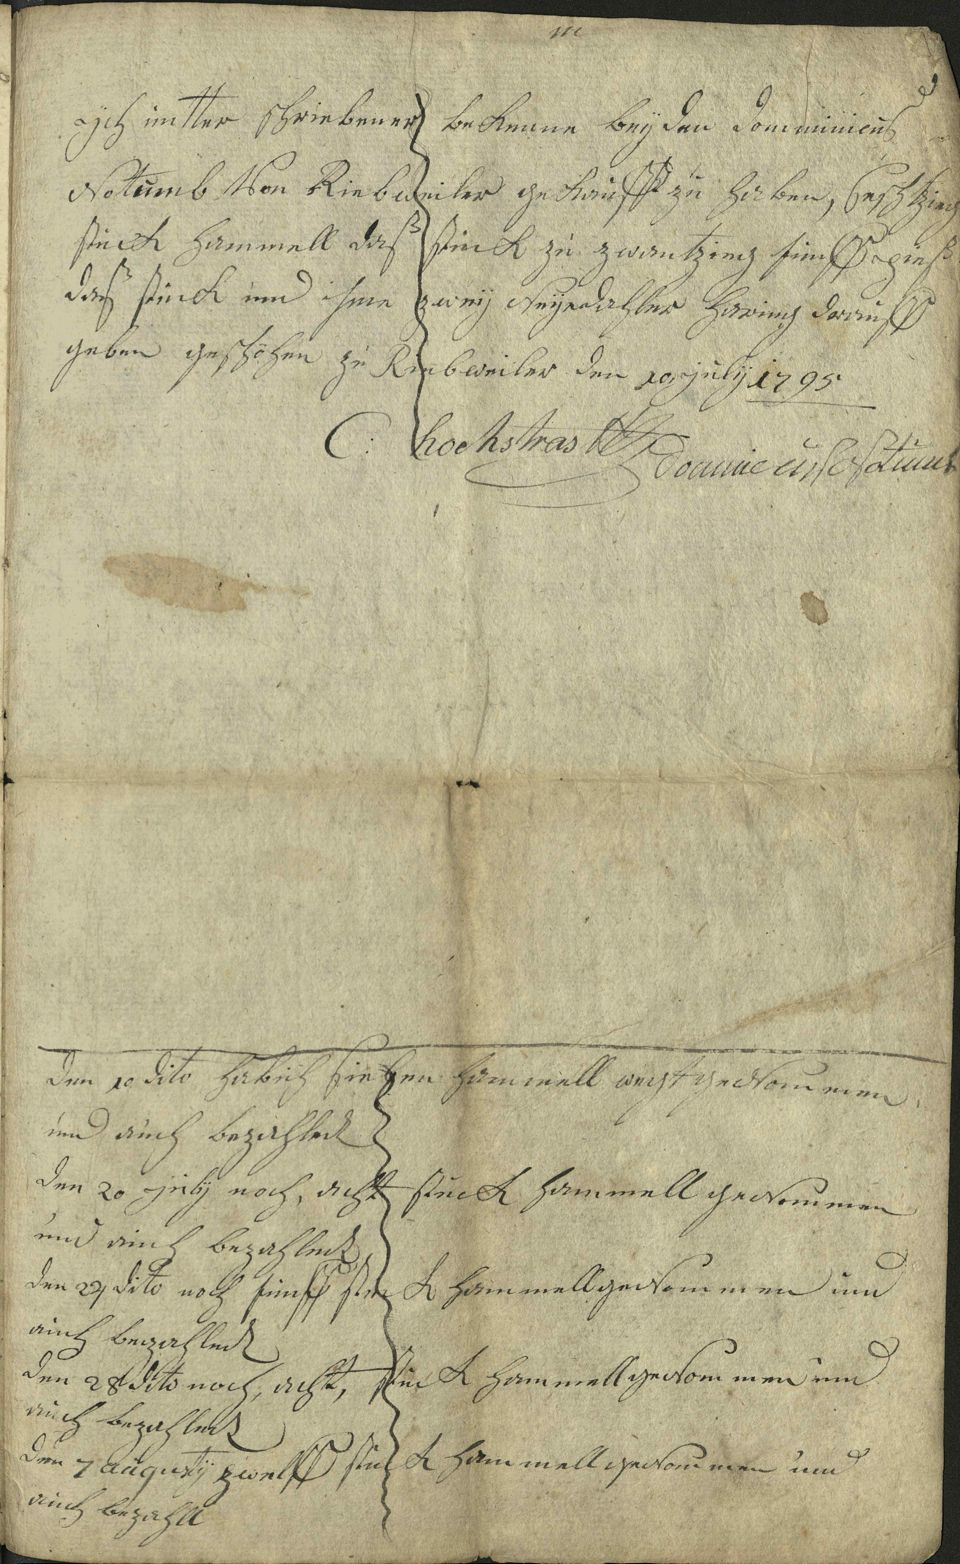 ich untter schriebener bekenne bey den dominicus
Notumb Von Riebweiler gekaufft zu haben, sechtzieg
stuck hammell daß stuck zu zwantzieg funff
daß stuck und ihme zweÿ Neÿedahler hartieg drauff
geben geschehen zu Riebweiler den 10 july 1795
C: hochstras
den 10 dito hab ich sieben hammell wegt genommen
und auch bezahledt
den 20 july noch, acht stuck hammell genommen
und auch bezahledt
den 24 dito noch funff stuck hammell genommen und
auch bezahledt
den 28 dito noch, acht, stuck hammell genommen und
auch bezahledt
den 7 augusty zwelff stuck hammell genommen und
auch bezahlt